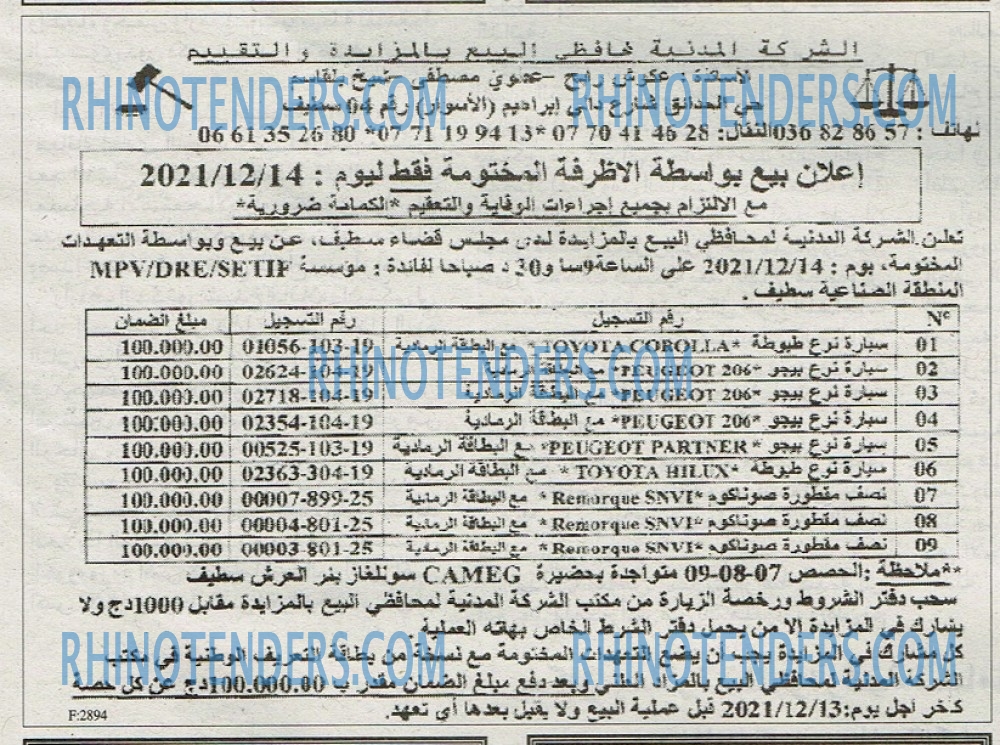 الشركة المدنية لحافظي البيع بالمزايدة والتقييم
الأساتذة : عكوش رابح - عموي مصطفى - بلقاسم
حي الحدائق شارع داني إبراهيم (الأسوار) رقم 04 سطيف
الهاتف : 036 82 86 57 النقال: 07 70 41 46 28 *07 71 19 94 13* 06 61 35 26 80
RHINOTENDERS.COM RHINOTENDERS.COM
إعلان بيع بواسطة الاظرفة المختومة فقط ليوم : 2021/12/14
مع الالتزام بجميع إجراءات الوقاية والتعقيم *الكمامة ضرورية*
تعلن الشركة المدنية لمحافظي البيع بالمزايدة لدى مجلس قضاء سطيف، عن بيع وبواسطة التعهدات
المختومة، يوم : 2021/12/14 على الساعة 9سا و30 د صباحا لفائدة : مؤسسة MPV/DRE/SETIF
المنطقة الصناعية سطيف .
N° رقم التسجيل رقم التسجيل مبلغ الضمان
01 سيارة نوع طيوطة *TOYOTA COROLLA* مع البطاقة الرمادية 01056-103-19 100.000.00
02 سيارة نوع بيجو *PEUGEOT 206* مع البطاقة الرمادية 02624-104-19 100.000.00
RHINOTENDERS.COM
03 سيارة نوع بيجو *PEUGEOT 206* مع البطاقة الرمادية 02718-104-19 100.000.00
04 سيارة نوع بيجو *PEUGEOT 206* مع البطاقة الرمادية 02354-104-19 100.000.00
05 سيارة نوع بيجو *PEUGEOT PARTNER* مع البطاقة الرمادية 00525-103-19 100.000.00
06 سيارة نوع طيوطة *TOYOTA HILUX* مع البطاقة الرمادية 02363-304-19 100.000.00
07 نصف مقطورة صوناكوم *Remorque SNVI* مع البطاقة الرمادية 00007-899-25 100.000.00
08 نصف مقطورة صوناكوم *Remorque SNVI* مع البطاقة الرمادية 00004-801-25 100.000.00
09 نصف مقطورة صوناكوم *Remorque SNVI* مع البطاقة الرمادية 00003-801-25 100.000.00
**ملاحظة :الحصص 07-08-09 متواجدة بحضيرة CAMEG سونلغاز بئر العرش سطيف
سحب دفتر الشروط ورخصة الزيارة من مكتب الشركة المدنية لمحافظي البيع بالمزايدة مقابل 1000دج ولا
يشارك في المزايدة إلا من يحمل دفتر الشرط الخاص بهاته العملية .
RHINOTENDERS.COM RHINOTENDERS.COM
كل مشارك في المزايدة يجب أن يضع التعهدات المختومة مع نسخة من بطاقة التعريف الوطنية في مكتب
الشركة المدنية لمحافظي البيع بالمزاد العلني وبعد دفع مبلغ الضمان مقدر ب 100.000.00دج عن كل حصة
كآخر أجل يوم:2021/12/13 قبل عملية البيع ولا يقبل بعدها أي تعهد.
F:2894